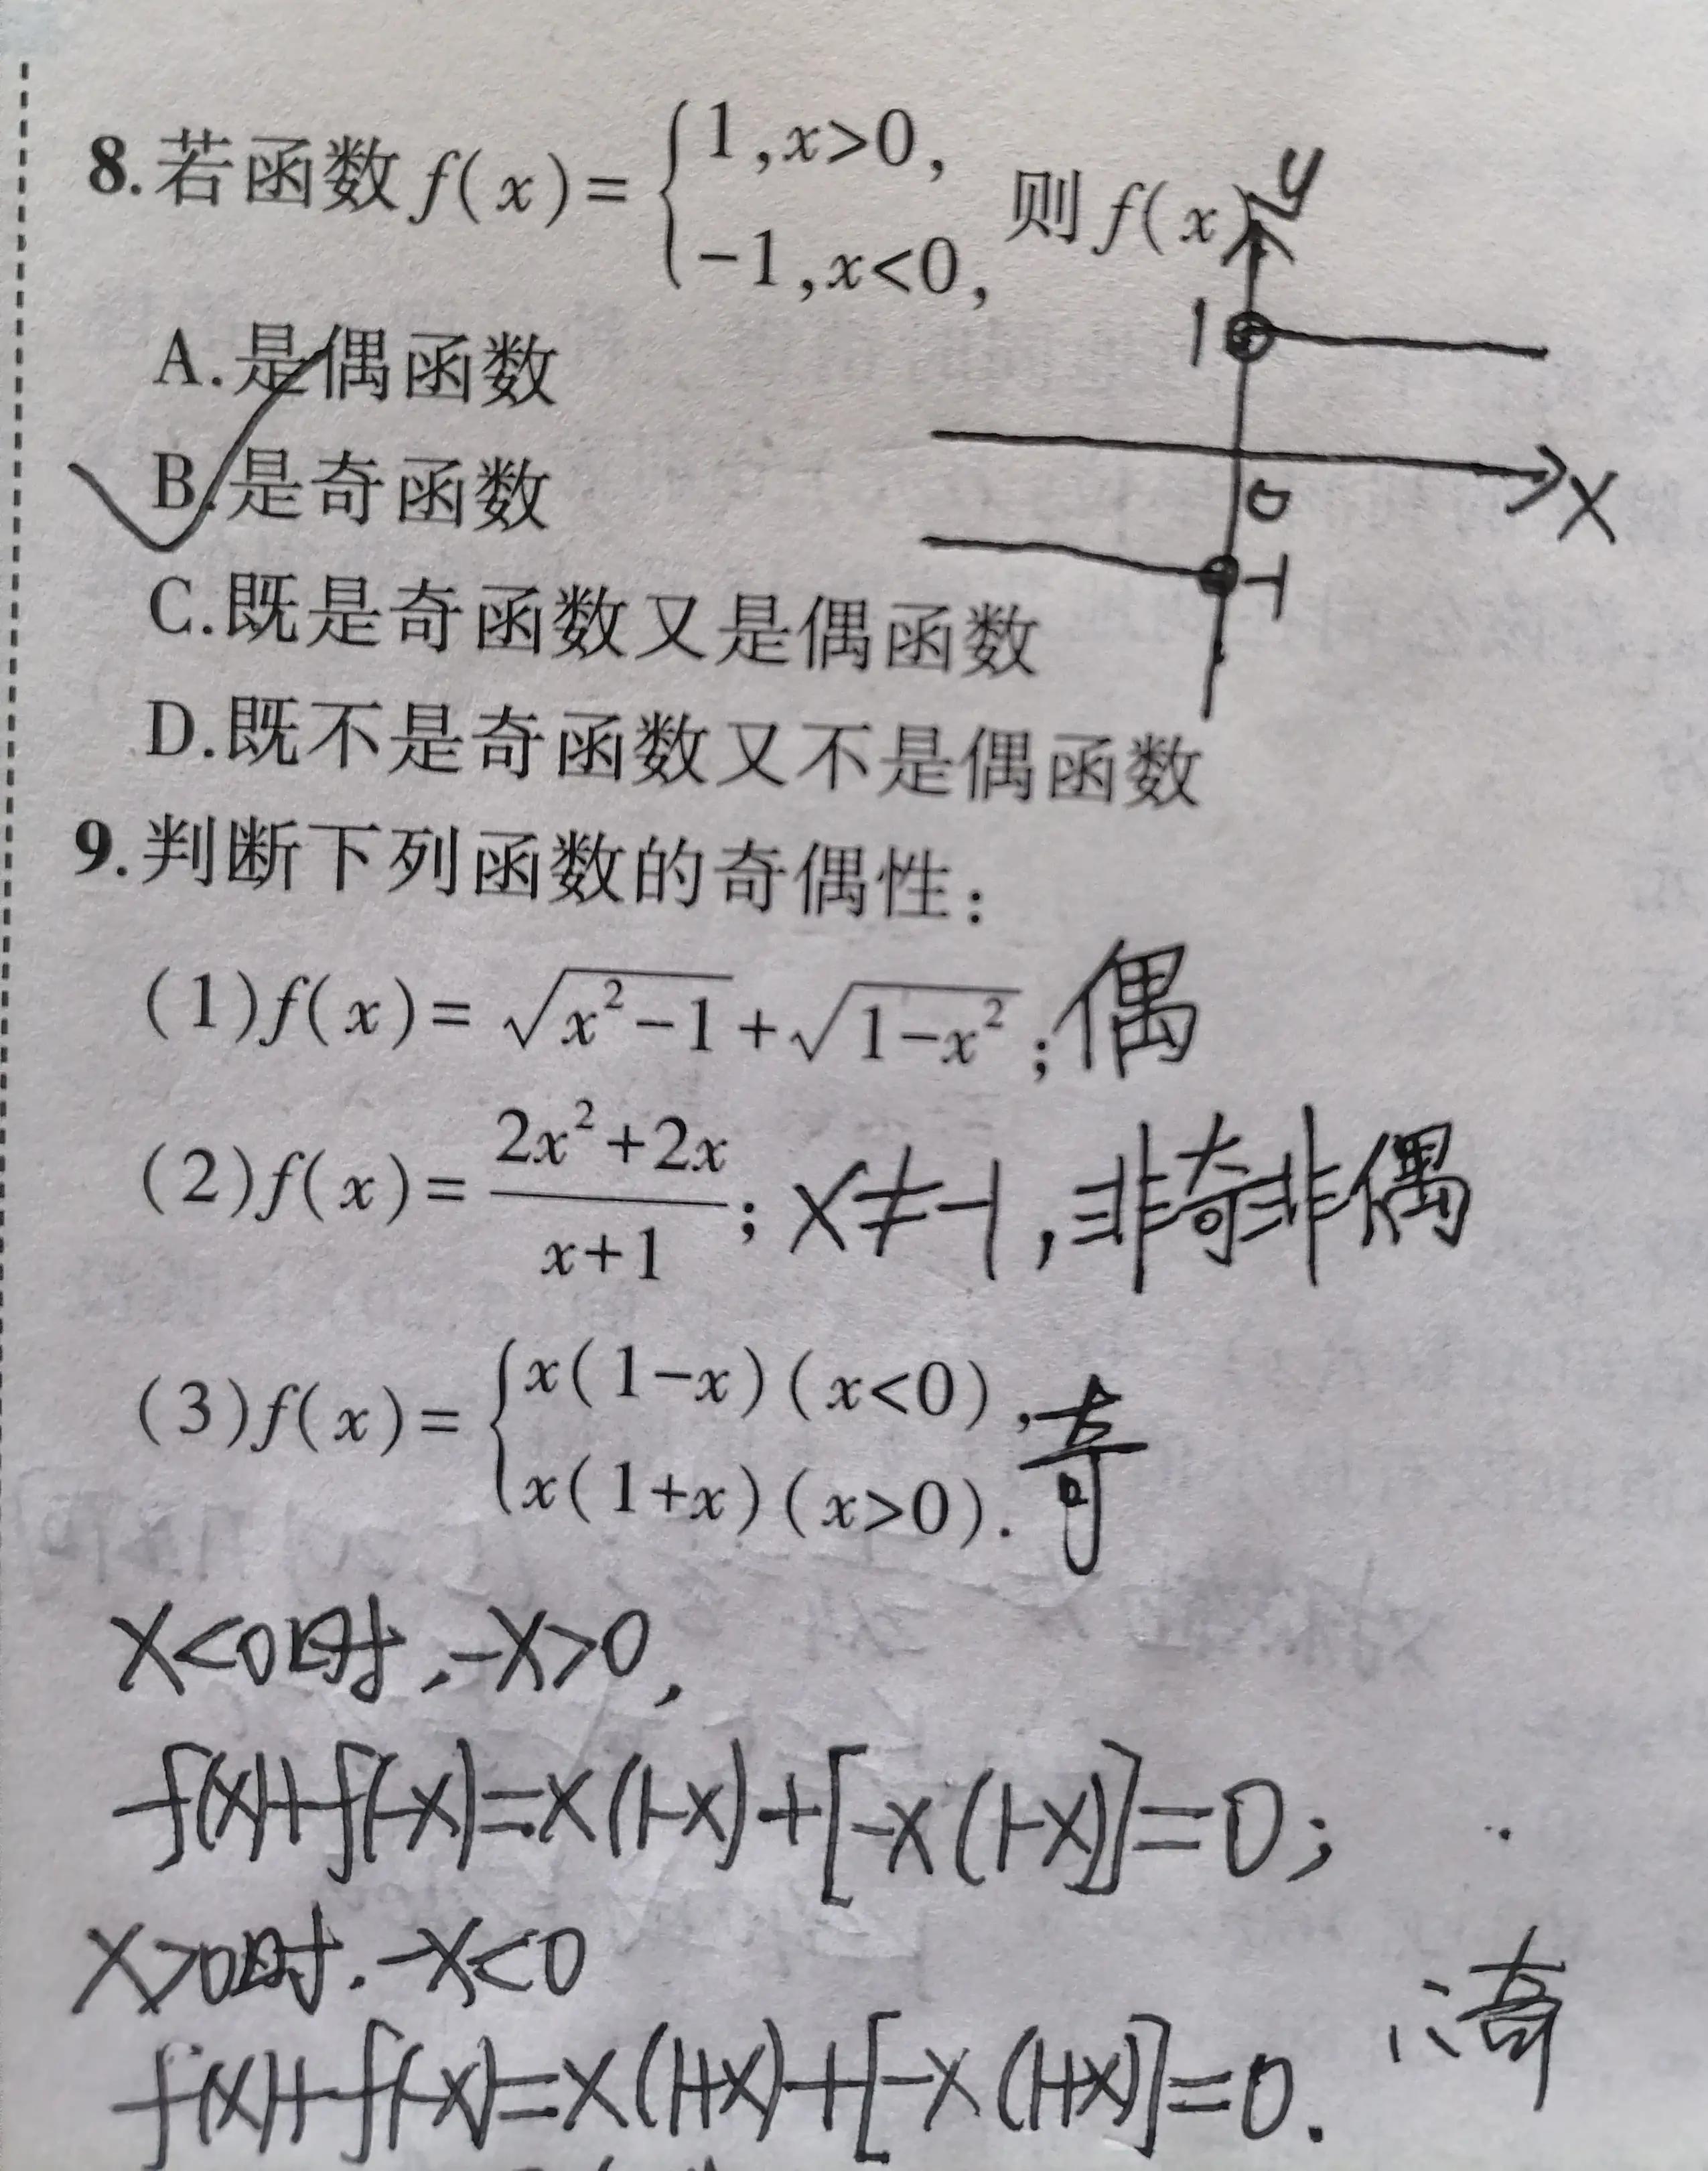 8.若函数f(x)={1,x>0, -1,x<0, 则f(x)
y
1
A.是偶函数
B.是奇函数
x
0
-1
C.既是奇函数又是偶函数
D.既不是奇函数又不是偶函数
9.判断下列函数的奇偶性:
(1)f(x)=√(x²-1)+√(1-x²);偶
(2)f(x)=(2x²+2x)/(x+1);x≠-1,非奇非偶
(3)f(x)={x(1-x)(x<0), x(1+x)(x>0).奇
x<0时,-x>0,
f(x)+f(-x)=x(1-x)+[-x(1-x)]=0;
x>0时.-x<0
∴奇
f(x)+f(-x)=x(1+x)+[-x(1+x)]=0.